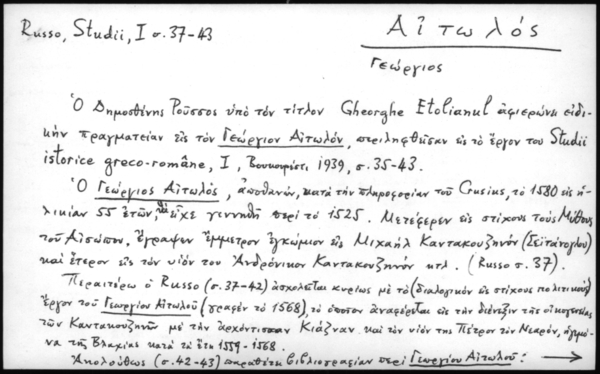 Russo, Studii, I σ. 37-43
Αἰτωλός
Γεώργιος
Ὁ Δημοσθένης Ροῦσσος ὑπὸ τὸν τίτλον Gheorghe Etolianul ἀφιερώνει εἰδι-
κὴν πραγματείαν εἰς τὸν Γεώργιον Αἰτωλόν, περιληφθεῖσαν εἰς τὸ ἔργον του Studii
istorice greco-române, I, Βουκουρέστι 1939, σ. 35-43.
Ὁ Γεώργιος Αἰτωλός, ἀποθανών, κατὰ τὴν πληροφορίαν τοῦ Crusius, τὸ 1580 εἰς ἡ-
λικίαν 55 ἐτῶν, θὰ εἶχε γεννηθῆ περὶ τὸ 1525. Μετέφερεν εἰς στίχους τοὺς Μύθους
τοῦ Αἰσώπου, ἔγραψεν ἔμμετρον ἐγκώμιον εἰς Μιχαὴλ Καντακουζηνὸν (Σεϊτάνογλου)
καὶ ἕτερον εἰς τὸν υἱόν του Ἀνδρόνικον Καντακουζηνὸν κτλ. (Russo σ. 37).
Περαιτέρω ὁ Russo (σ. 37-42) ἀσχολεῖται κυρίως μὲ τὸ (διαλογικὸν εἰς στίχους πολιτικοὺς)
ἔργον τοῦ Γεωργίου Αἰτωλοῦ (γραφὲν τὸ 1568), τὸ ὁποῖον ἀναφέρεται εἰς τὴν διένεξιν τῆς οἰκογενείας
τῶν Καντακουζηνῶν μὲ τὴν ἀρχόντισσαν Κιάζναν καὶ τὸν υἱόν της Πέτρον τὸν Νεαρόν, ἡγεμό-
να τῆς Βλαχίας κατὰ τὰ ἔτη 1559-1568.
Ἀκολούθως (σ. 42-43) παραθέτει βιβλιογραφίαν περὶ Γεωργίου Αἰτωλοῦ: →